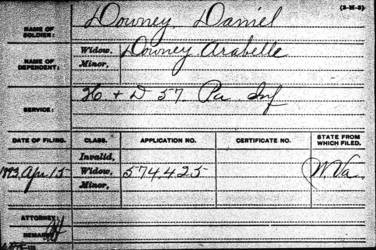 (3-252)
NAME OF SOLDIER: Downey, Daniel
NAME OF DEPENDENT: Widow, Downey Arabelle
Minor,
SERVICE: H + D 57. Pa Inf
DATE OF FILING. CLASS. APPLICATION NO. CERTIFICATE NO. STATE FROM WHICH FILED.
Invalid,
1893, Apr 15 Widow, 574.425 W.Va.
Minor,
ATTORNEY:
REMARKS: